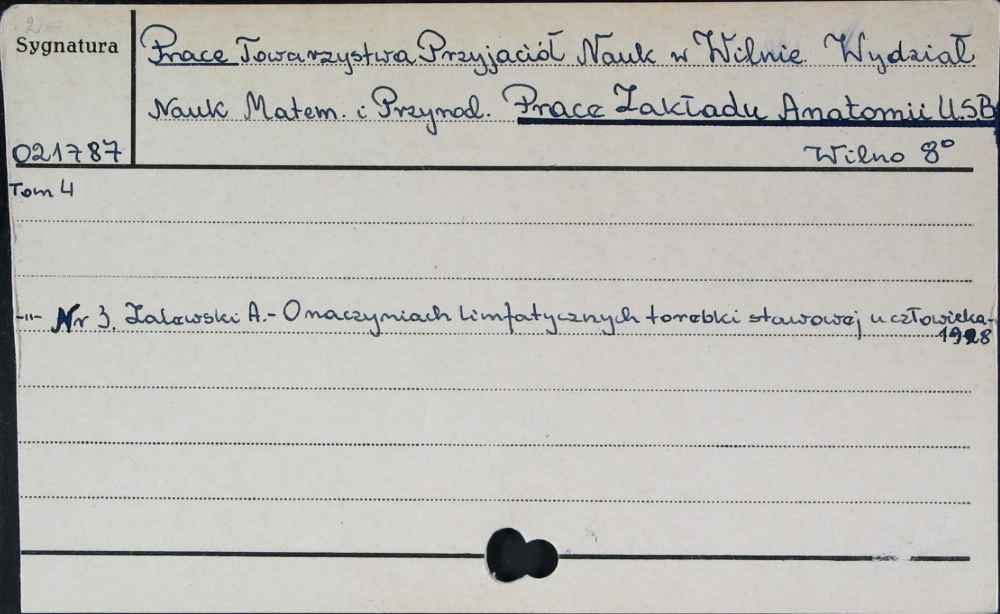 Sygnatura
Prace Towarzystwa Przyjaciół Nauk w Wilnie. Wydział
Nauk Matem. i Przyrod. Prace Zakładu Anatomii U.S.B
021787
Wilno 8°
Tom 4
-"- Nr 3. Zalewski A.- O naczyniach limfatycznych torebki stawowej u człowieka.-
1928